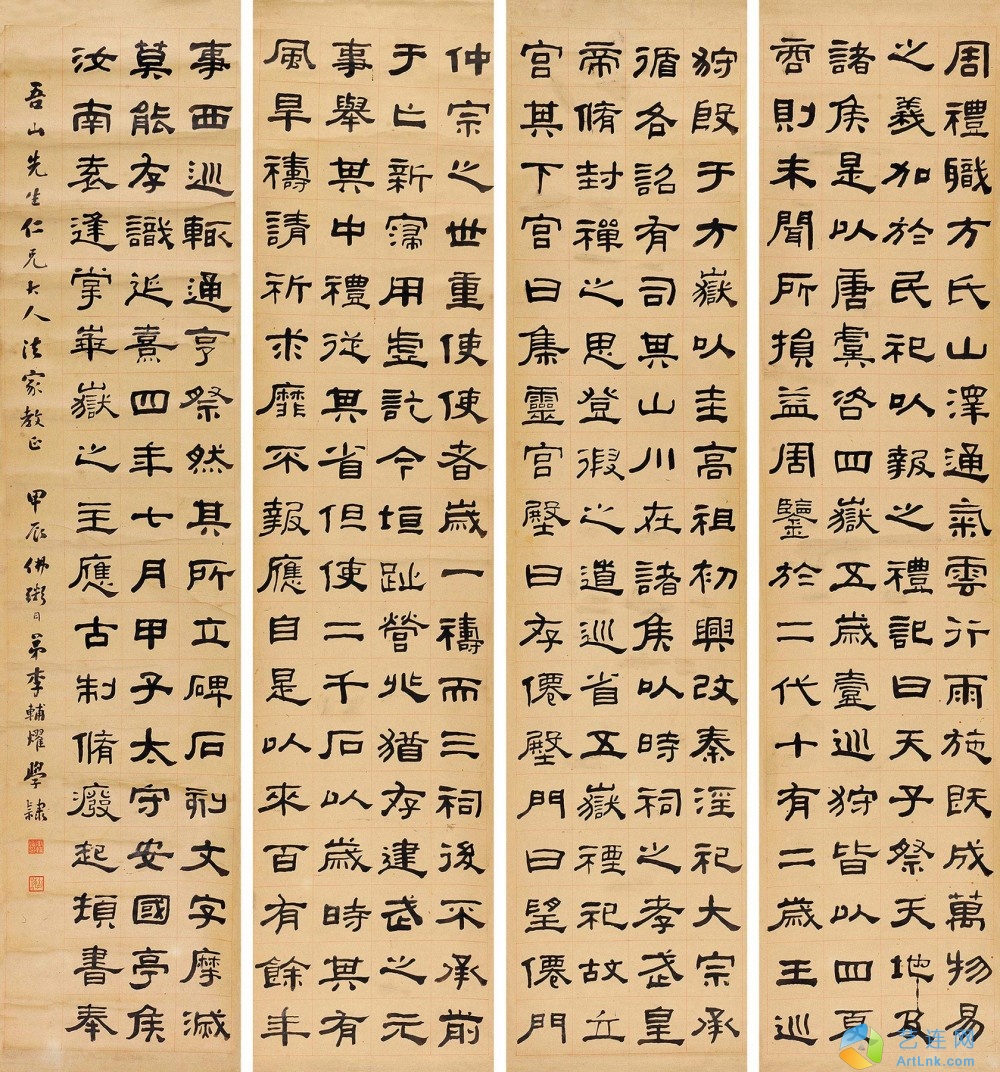 周禮職方氏山澤通氣雲行雨施既成萬物易
之義加於民祀以報之禮記曰天子祭天地及
諸侯是以唐虞咨四嶽五歲壹巡狩皆以四夏
商則未聞所損益周鑒於二代十有二歲王巡
狩殷于方嶽以圭高祖初興改秦淫祀大宗承
循各詔有司其山川在諸侯以時祠之孝武皇
帝脩封禪之思登徦之道巡省五嶽禋祀故丘
宮其下宮曰集靈宮壂曰存僊壂門曰望僊門
仲宗之世重使使者歲一禱而三祠後不承前
于亡新寖用虛訖今垣趾營兆猶存建武之元
事舉其中禮從其省但使二千石以歲時其有
風旱禱請祈求靡不報應自是以來百有餘年
事西巡輒通亨祭然其所立碑石刻文字摩滅
莫能存識延熹四年七月甲子太守安國亭侯
汝南袁逢掌崋嶽之主應古制脩廢起頓書奉
吾山先生仁兄大人法家教正 甲辰佛粥日弟李輔燿學隸
艺连网
ArtLnk.com